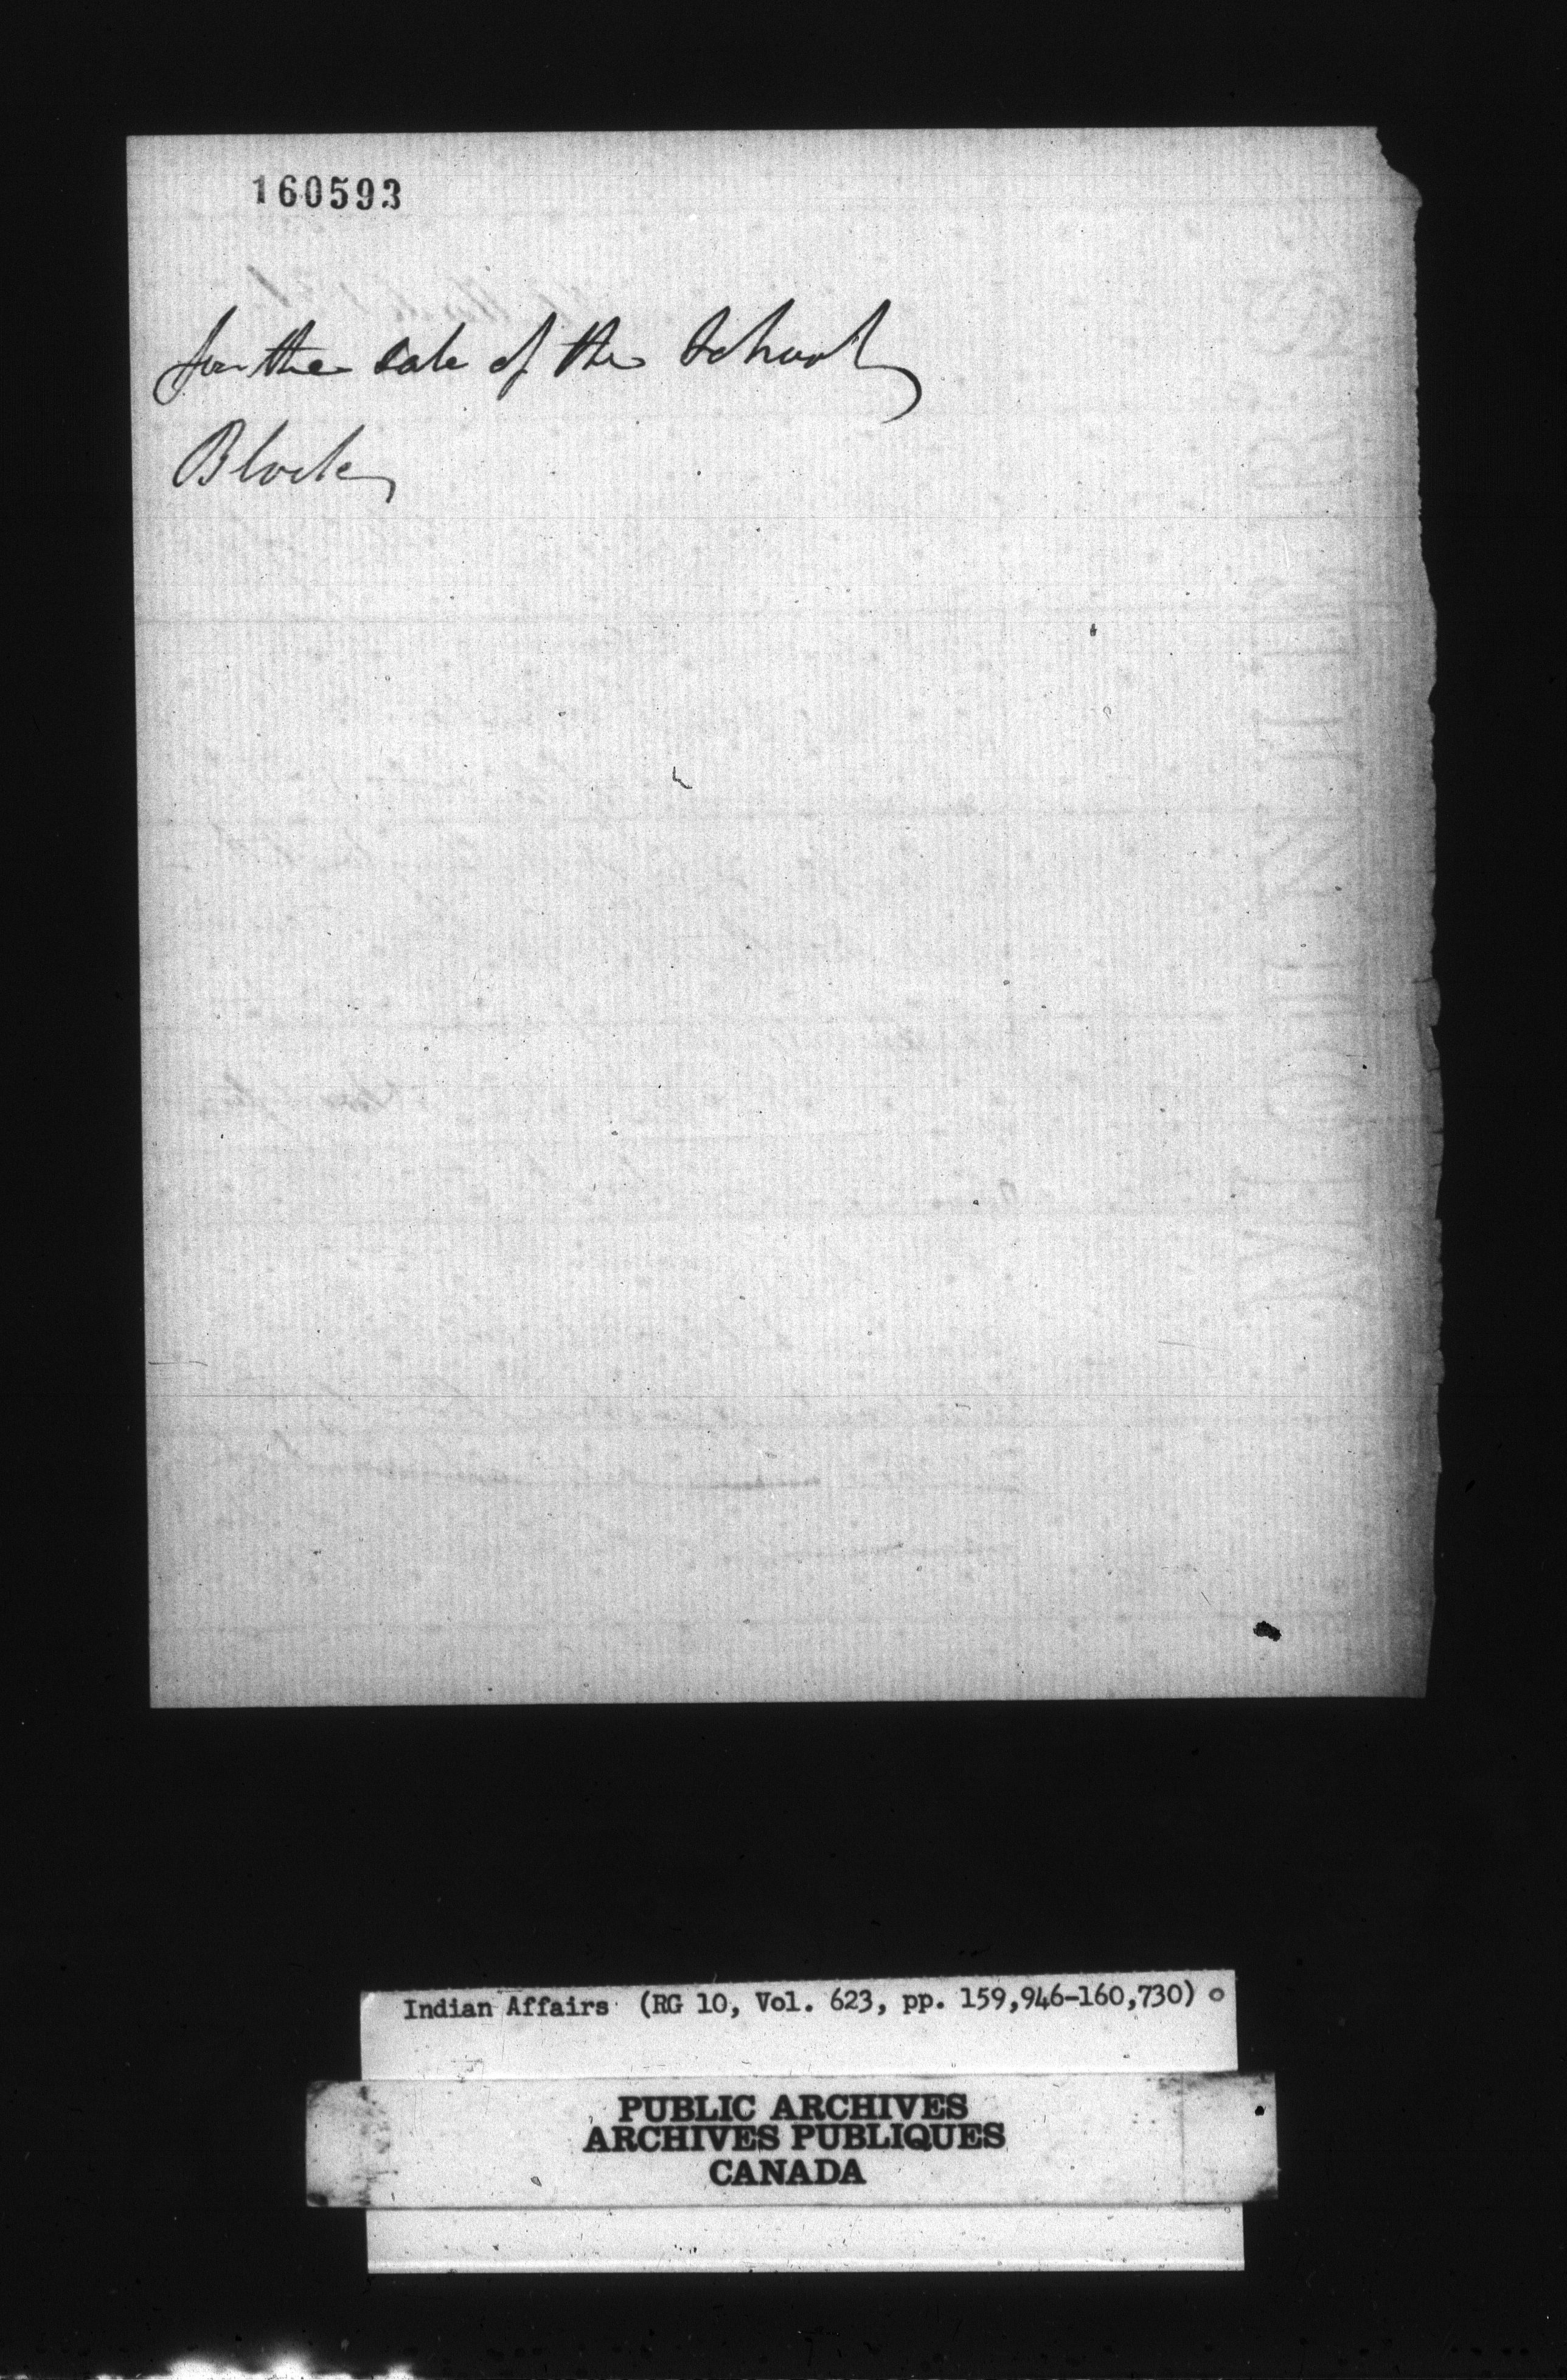 160593
for the sale of the School
Block
Indian Affairs (RG 10, Vol. 623, pp. 159,946-160,730)
PUBLIC ARCHIVES
ARCHIVES PUBLIQUES
CANADA